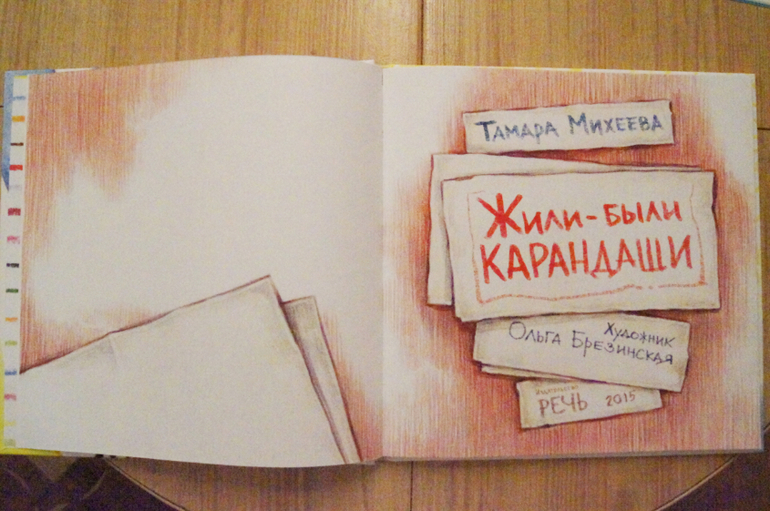 Тамара Михеева
Жили-были
КАРАНДАШИ
Художник
Ольга Брезинская
РЕЧЬ 2015